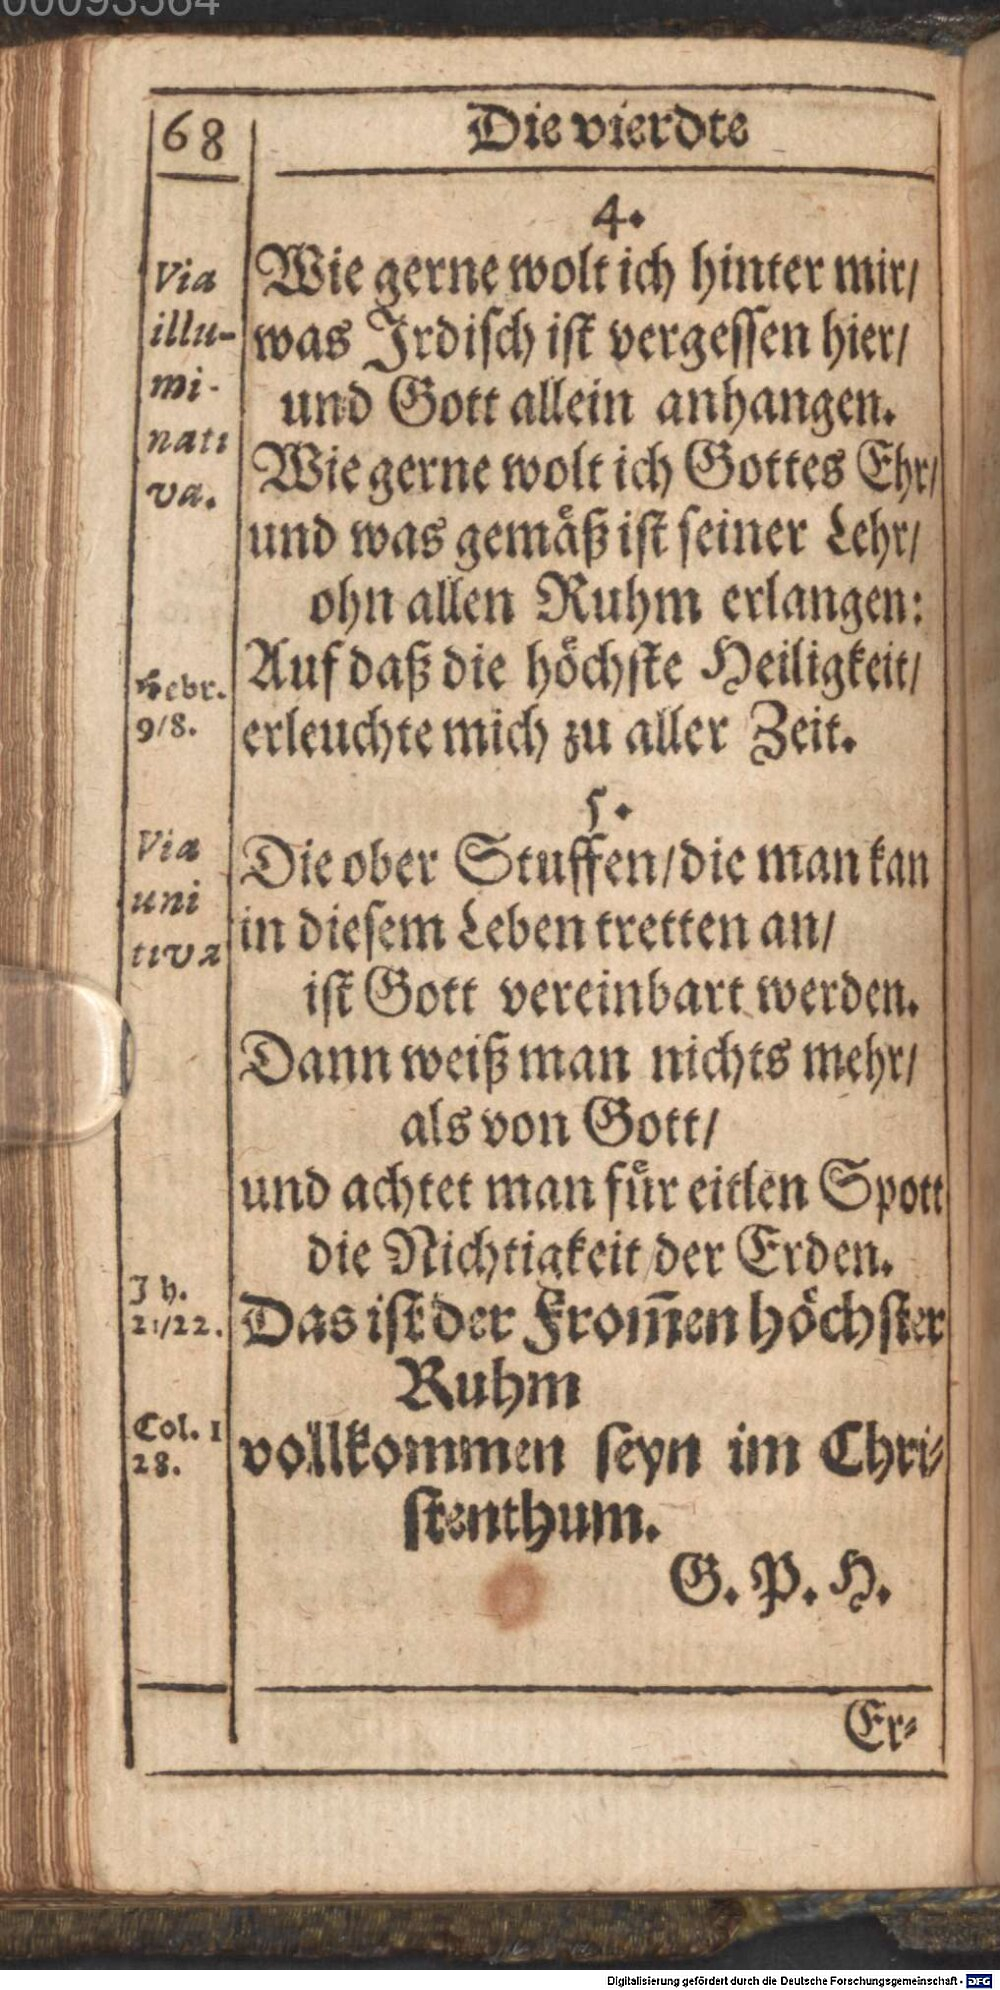 68
Die vierdte
4.
Via
illu-
mi-
nati
va.
Wie gerne wolt ich hinter mir/
was Irdisch ist vergessen hier/
und Gott allein anhangen.
Wie gerne wolt ich Gottes Ehr/
und was gemäß ist seiner Lehr/
ohn allen Ruhm erlangen:
Hebr.
9/8.
Auf daß die höchste Heiligkeit/
erleuchte mich zu aller Zeit.
5.
Via
uni
tiva
Die ober Stuffen/die man kan
in diesem Leben tretten an/
ist Gott vereinbart werden.
Dann weiß man nichts mehr/
als von Gott/
und achtet man für eitlen Spott
die Nichtigkeit der Erden.
J h.
21/22.
Das ist der From̅en höchster
Ruhm
Col. 1
28.
vollkommen seyn im Chri-
stenthum.
G. P. H.
Er-
Digitalisierung gefördert durch die Deutsche Forschungsgemeinschaft - DFG